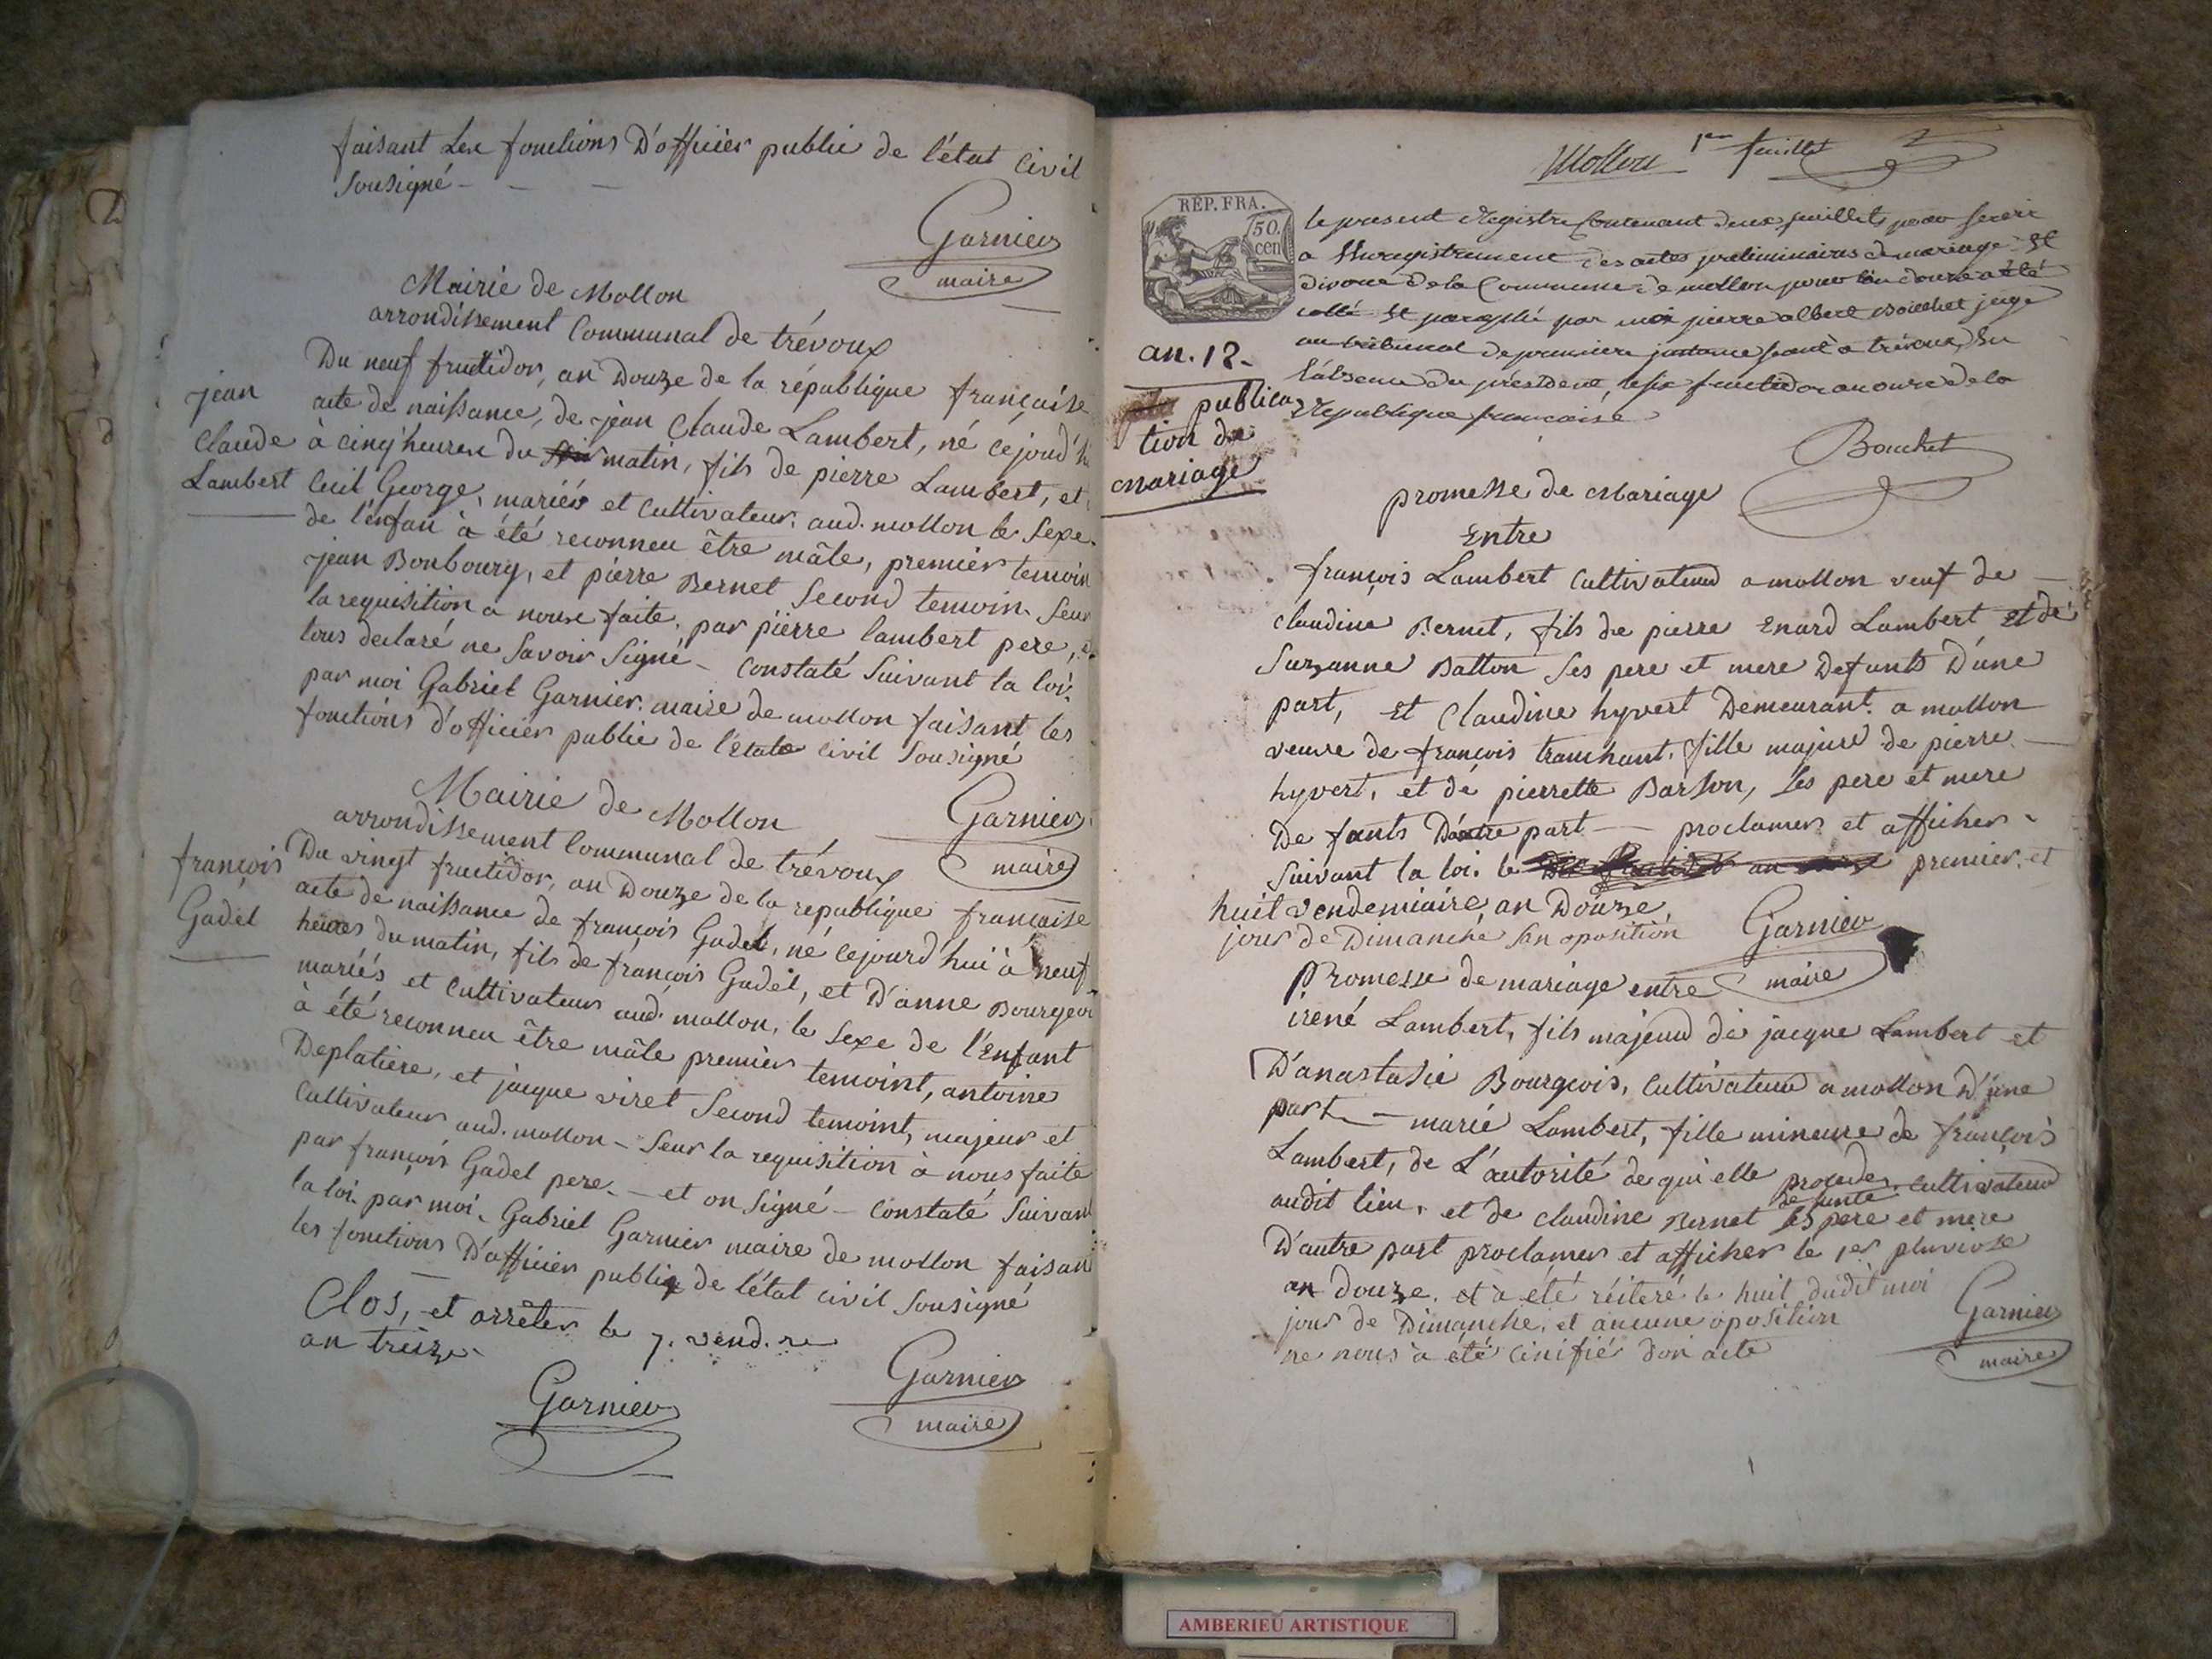 faisant Les fonctions D'officier public de l'état Civil
Sousigné - - -
Garnier
maire
Mairie de Mollon
arrondissement Communal de trévoux
jean
Claude
Lambert
Du neuf fructidor, an Douze de la république française
acte de naissance, de jean Claude Lambert, né cejourd'h
à cinq heures du matin, fils de pierre Lambert, et
Ceil George, mariés et Cultivateur aud. mollon le Sexe
de l'enfan à été reconneu être mâle, premier temoin
jean Bonbourg, et pierre Bernet Second temoin. Seur
la requisition a nous faite, par pierre lambert pere,
tous declaré ne Savoir Signé - Constaté Suivant la loi,
par moi Gabriel Garnier, maire de mollon faisant les
fonctions d'officier public de l'état Civil Sousigné
Garnier
maire
Mairie de Mollon
arrondissement Communal de trévoux
françois
Gadel
Du vingt fructidor, an Douze de la republique française
acte de naissance de françois Gadel, né cejourd'hui à neuf
heures du matin, fils de françois Gadel, et D'anne Bourgeoi
mariés et Cultivateurs aud. mollon, le Sexe de l'Enfant
à été reconneu être mâle premier temoint, antoine
Deplatiere, et jacque viret Second temoint, majeur et
Cultivateur aud. mollon - Seur la requisition à nous faite
par françois Gadel pere. - et on Signé - Constaté Suivant
la loi par moi, Gabriel Garnier maire de mollon faisan
les fonctions D'officier publiq de l'état civil Sousigné
Clos, et arrêter le 7. vend.re
an treize.
Garnier
Garnier
maire
Mollon 1er feuillet
REP. FRA.
50.
cen
le present Registre Contenant deux feuillets pour servir
a l'Enregistrement des actes preliminaires de mariage et
divorce de la Commune de mollon pour l'an douze a été
cotté et paraphé par moi pierre albert Bouchet juge
au tribunal de premiere instance seant à trévoux, En
l'absence du président, le six fructidor an onze de la
République française
Bouchet
an. 12.
publica
tion de
mariage
promesse de Mariage
Entre
françois Lambert Cultivateur a mollon veuf de
Claudine Bernet, fils de pierre Enard Lambert et de
Suzanne Batton Ses pere et mere Defunts D'une
part, Et Claudine hyvert Demeurant a mollon
veuve de françois tranchant, fille majure de pierre
hyvert, et de pierrette Barson, Ses pere et mere
De funts D'autre part - proclamer et afficher
Suivant la loi. le premier et
huit vendemiaire an Douze
jour de Dimanche San oposition
Garnier
maire
Promesse de mariage entre
irené Lambert, fils majeur de jacque Lambert et
D'anastasie Bourgeois, Cultivateur a mollon D'une
part - marie Lambert, fille mineure de françois
Lambert, de L'autorité de qui elle procede, Cultivateur
audit lieu, et de Claudine Bernet defunte Ses pere et mere
D'autre part proclamer et afficher le 1er pluviose
an douze. et a été réiteré le huit dudit moi
jour de Dimanche, et aucune oposition
ne nous a été cinifié don acte
Garnier
maire
AMBERIEU ARTISTIQUE